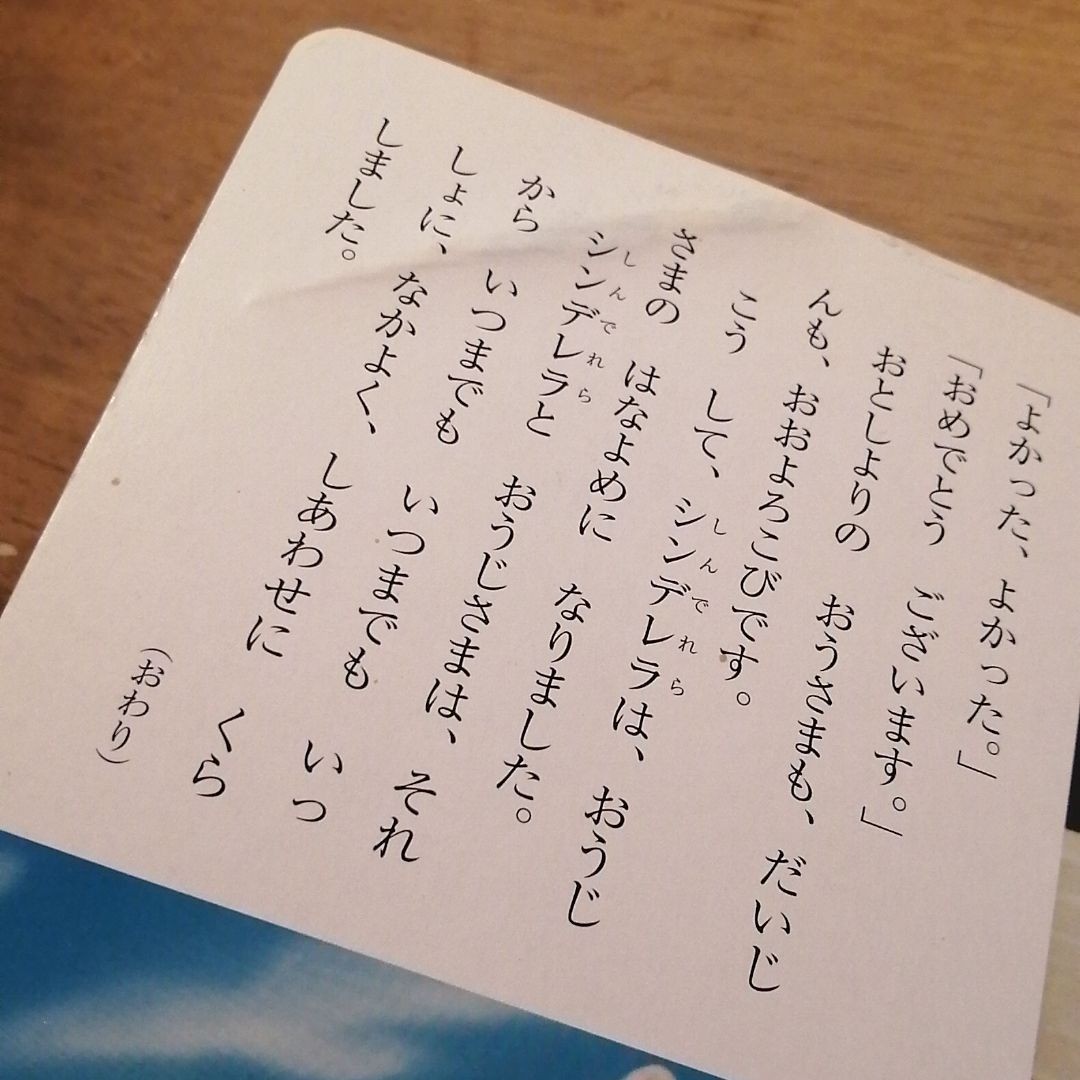 「よかった、よかった。」
「おめでとう　ございます。」
おとしよりの　おうさまも、だいじ
んも、おおよろこびです。
こう　して、シンデレラは、おうじ
しんでれら
さまの　はなよめに　なりました。
シンデレラと　おうじさまは、それ
しんでれら
から　いつまでも　いつまでも　いっ
しょに、なかよく、しあわせに　くら
しました。
（おわり）